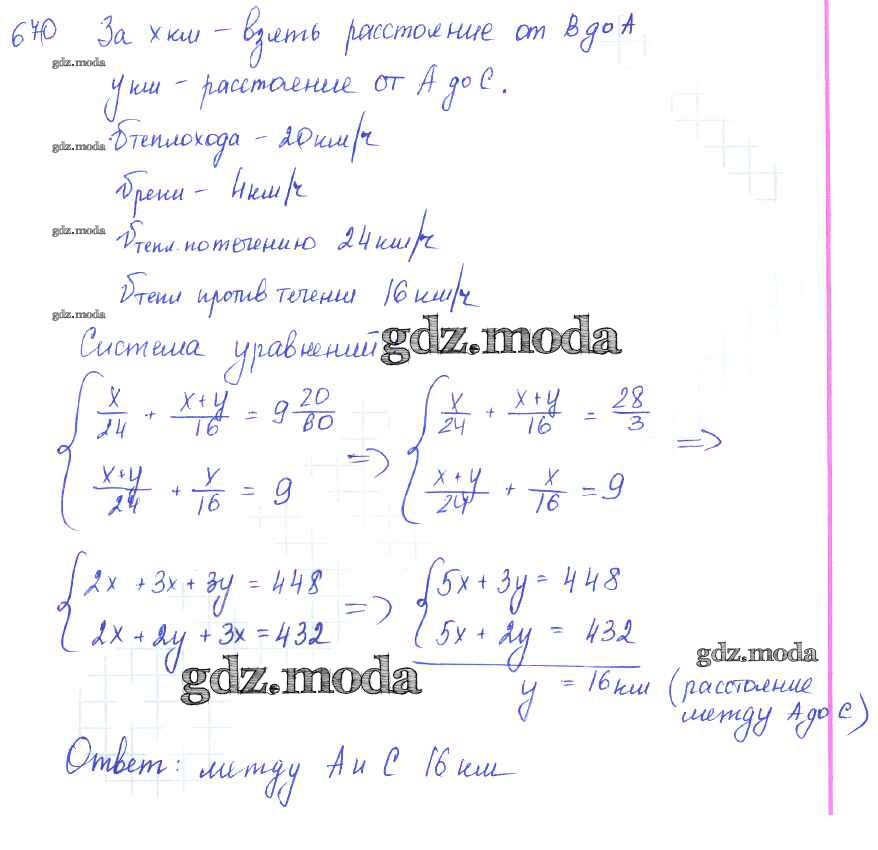 670 За x км – взять расстояние от B до A
gdz.moda
y км – расстояние от A до C.
gdz.moda
υ теплохода – 20 км/ч
υ реки – 4 км/ч
gdz.moda
υ тепл. по течению 24 км/ч
υ тепл против течения 16 км/ч
gdz.moda
Система уравнений
gdz.moda
{ x/24 + (x+y)/16 = 9 20/60 => { x/24 + (x+y)/16 = 28/3 =>
{ (x+y)/24 + x/16 = 9 { (x+y)/24 + x/16 = 9
{ 2x + 3x + 3y = 448 => { 5x + 3y = 448
{ 2x + 2y + 3x = 432 { 5x + 2y = 432
gdz.moda
gdz.moda
y = 16 км (расстояние
между A до C)
Ответ: между A и C 16 км